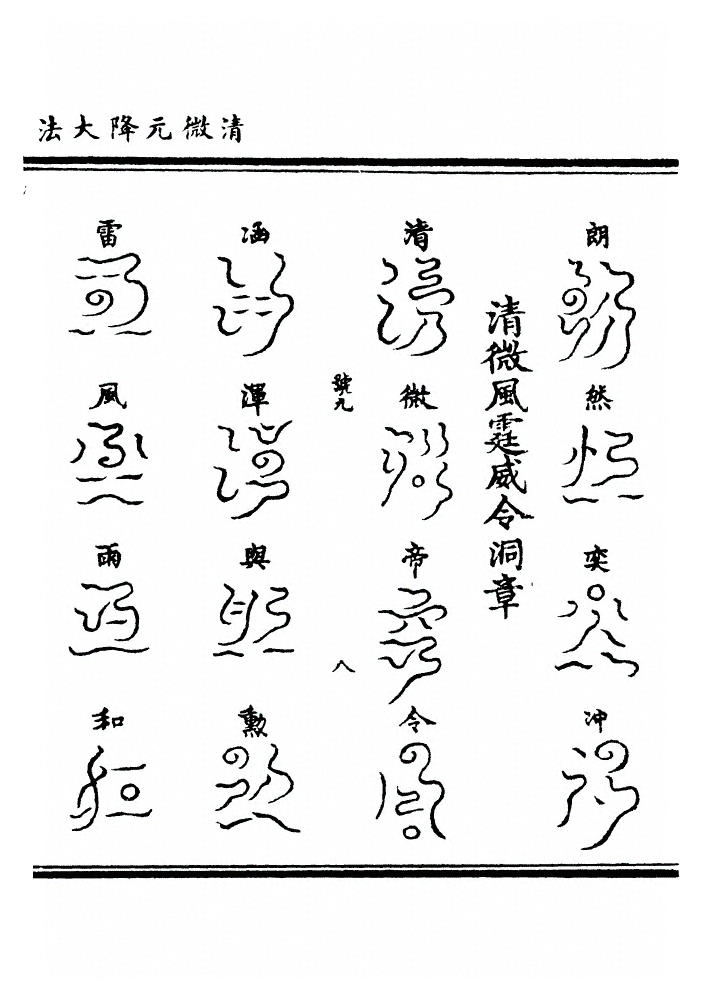 清微元降大法
朗然奕沖
清微風霆威令洞章
清微帝令
號九
八
涵渾與勲
雷風雨和